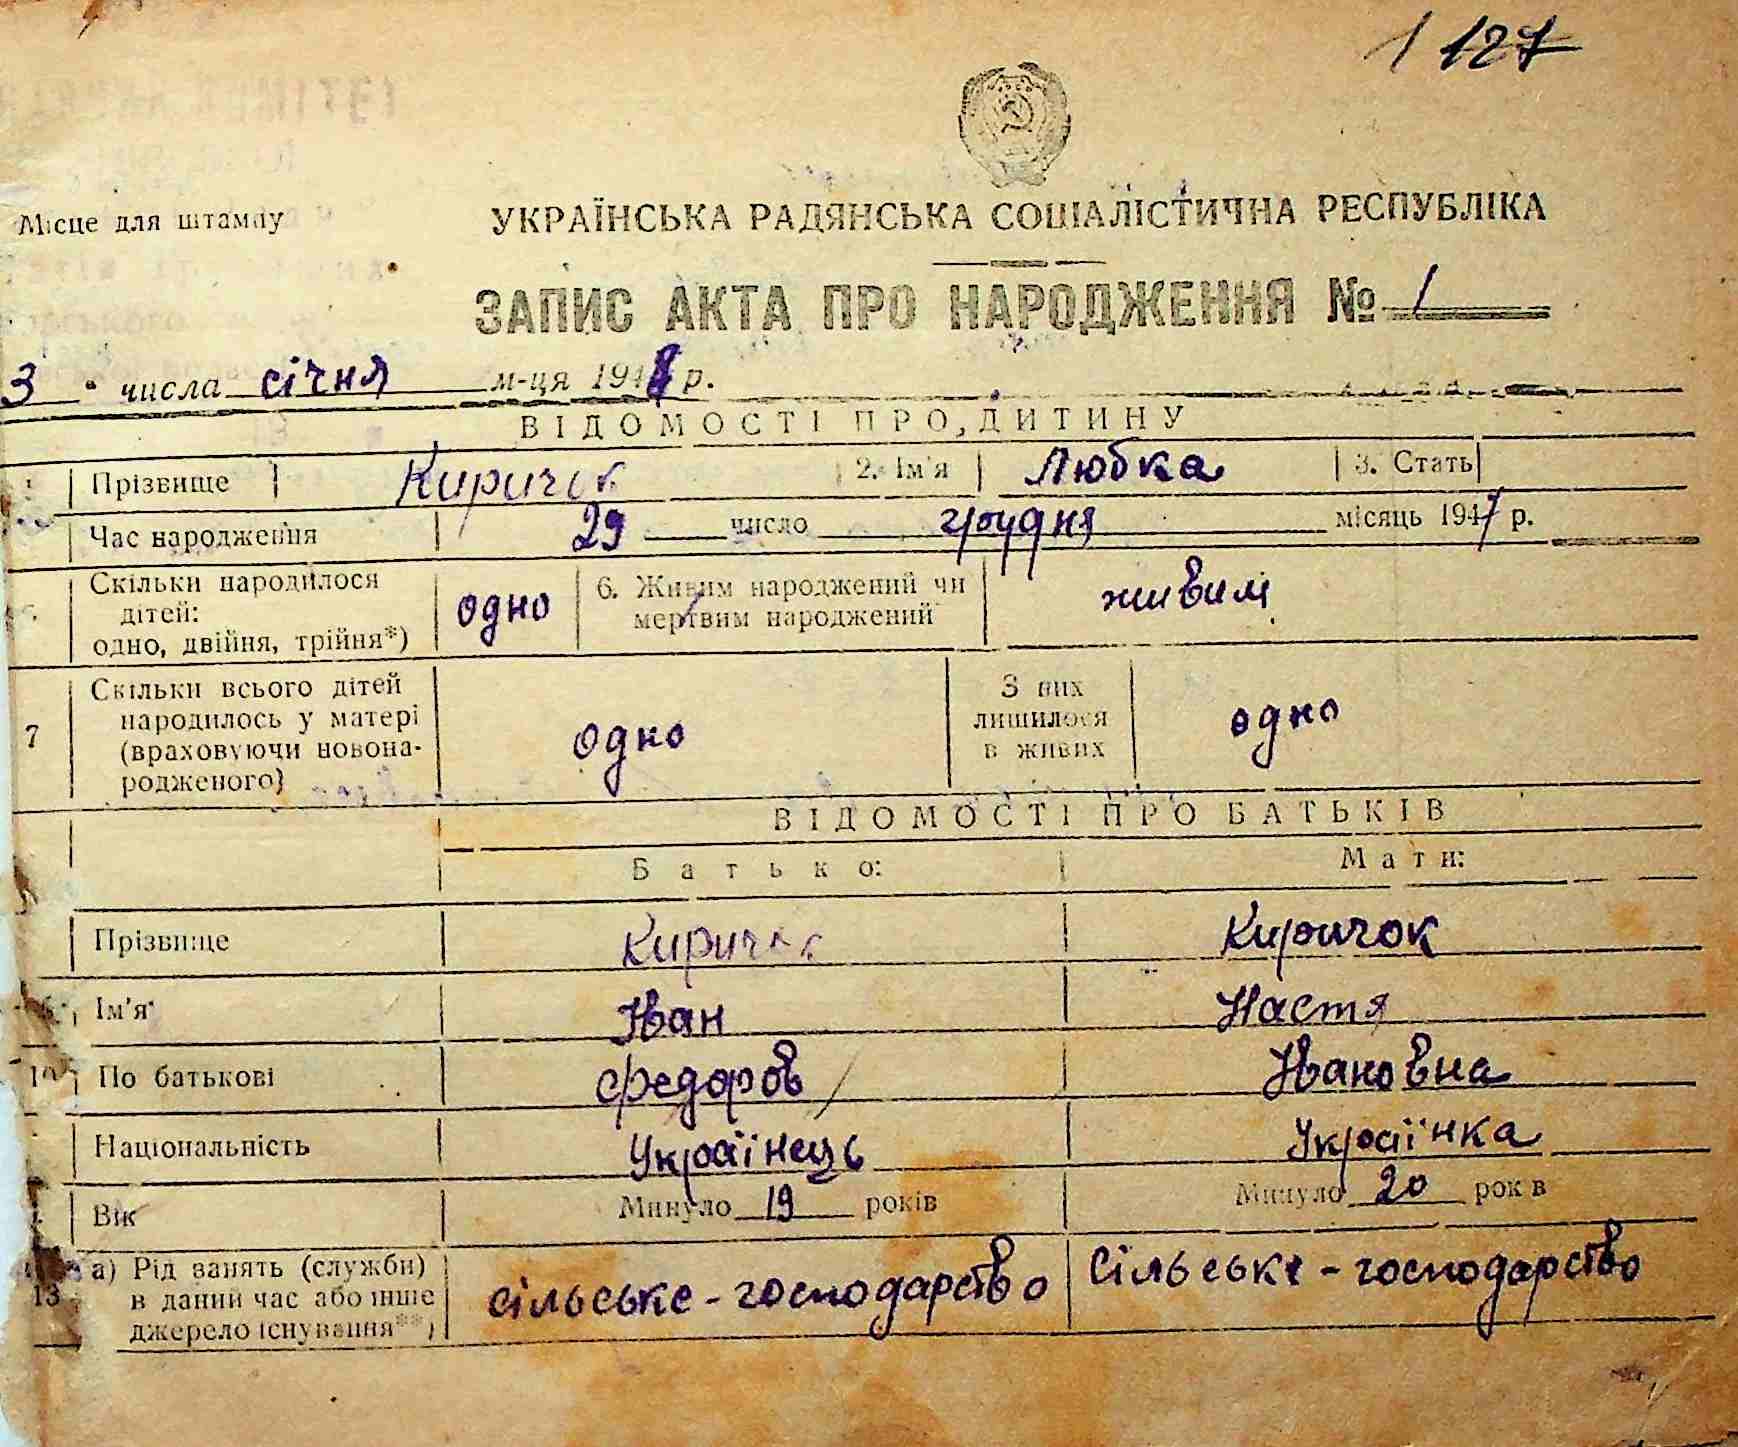 1 127
Місце для штампу
УКРАЇНСЬКА РАДЯНСЬКА СОЦІАЛІСТИЧНА РЕСПУБЛІКА
ЗАПИС АКТА ПРО НАРОДЖЕННЯ № 1
3 числа січня м-ця 1948 р.
ВІДОМОСТІ ПРО ДИТИНУ
Прізвище Киричок 2. Ім'я Любка 3. Стать
Час народження 29 число грудня місяць 1947 р.
Скільки народилося дітей: одно, двійня, трійня*) одно 6. Живим народжений чи мертвим народжений живим
7 Скільки всього дітей народилось у матері (враховуючи новонародженого) одно З них лишилося в живих одно
ВІДОМОСТІ ПРО БАТЬКІВ
Батько: Мати:
Прізвище Киричок Киричок
Ім'я Іван Настя
10 По батькові Федоров Івановна
Національність Українець Українка
Вік Минуло 19 років Минуло 20 років
13 а) Рід занять (служби) в даний час або інше джерело існування**) сільське-господарство сільське-господарство